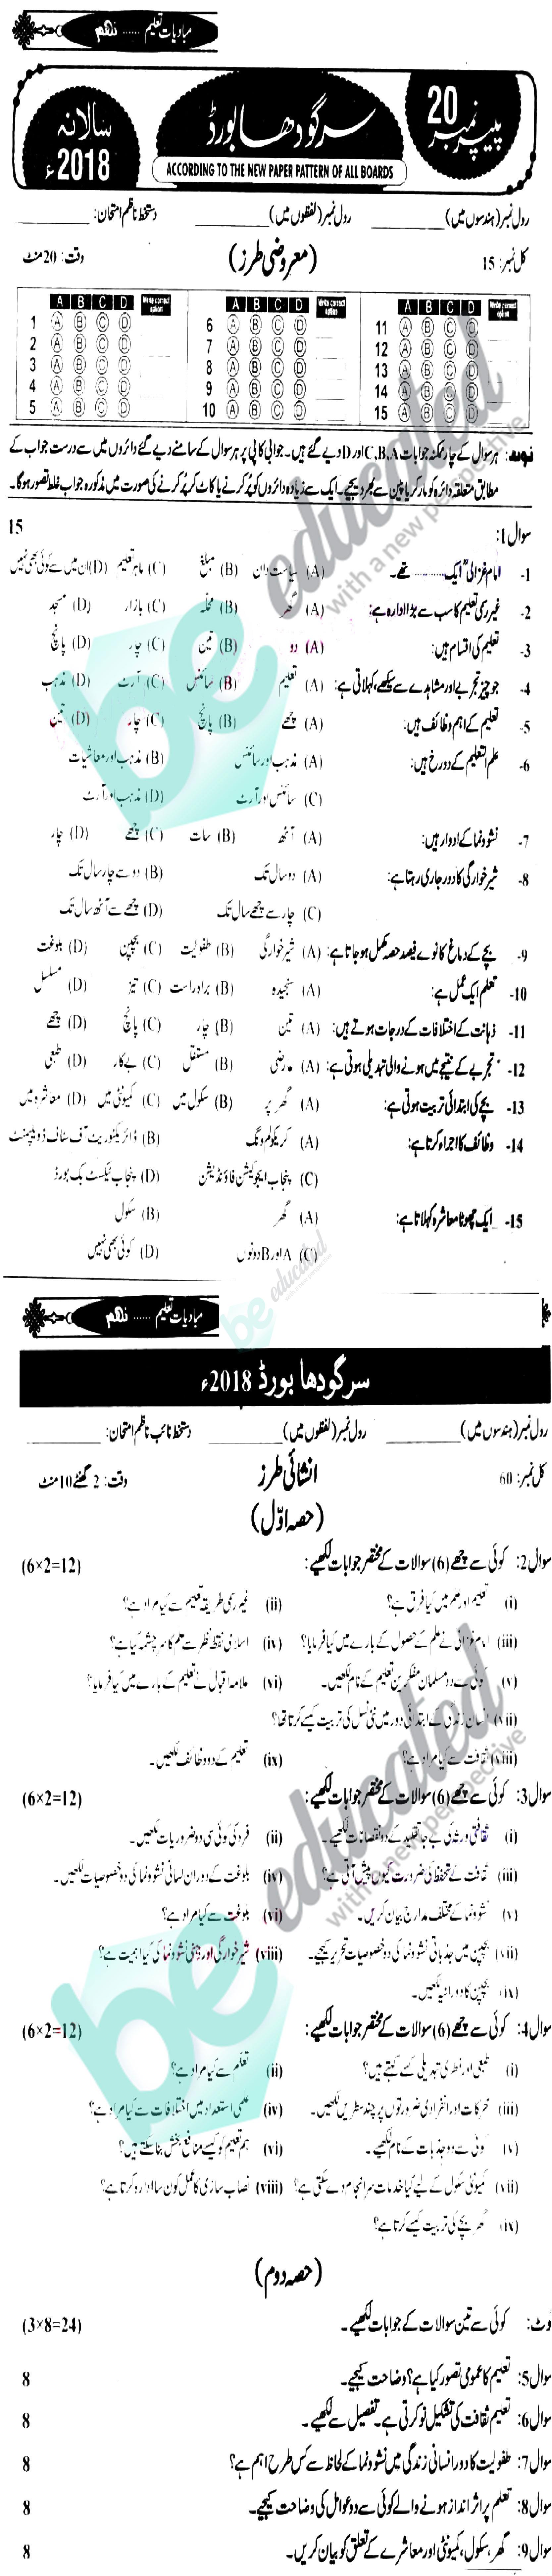 مبادیات تعلیم ...... نہم
پیپر نمبر 20
سرگودھا بورڈ
سالانہ 2018ء
ACCORDING TO THE NEW PAPER PATTERN OF ALL BOARDS
رول نمبر (ہندسوں میں) ________ رول نمبر (لفظوں میں) ________ دستخط ناظم امتحان: ________
کل نمبر: 15 (معروضی طرز) وقت: 20 منٹ
A B C D Write correct option A B C D Write correct option A B C D Write correct option
1 A B C D 6 A B C D 11 A B C D
2 A B C D 7 A B C D 12 A B C D
3 A B C D 8 A B C D 13 A B C D
4 A B C D 9 A B C D 14 A B C D
5 A B C D 10 A B C D 15 A B C D
نوٹ: ہر سوال کے چار ممکنہ جوابات C,B,A اور D دیے گئے ہیں۔ جوابی کاپی پر ہر سوال کے سامنے دیے گئے دائروں میں سے درست جواب کے
مطابق متعلقہ دائرہ کو مارکر یا پین سے بھر دیجیے۔ ایک سے زیادہ دائروں کو پُر کرنے یا کاٹ کر پُر کرنے کی صورت میں مذکورہ جواب غلط تصور ہوگا۔
سوال 1: 15
1- امام غزالیؒ ایک ............ تھے۔ (A) سیاست دان (B) مبلغ (C) ماہر تعلیم (D) ان میں سے کوئی بھی نہیں
2- غیر رسمی تعلیم کا سب سے بڑا ادارہ ہے: (A) گھر (B) محلہ (C) بازار (D) مسجد
3- تعلیم کی اقسام ہیں: (A) دو (B) تین (C) چار (D) پانچ
4- جو چیز تجربے اور مشاہدے سے سیکھے، کہلاتی ہے: (A) تعلیم (B) سائنس (C) آرٹ (D) مذہب
5- تعلیم کے اہم وظائف ہیں: (A) چھے (B) پانچ (C) چار (D) تین
6- علم التعلیم کے دو رخ ہیں: (A) مذہب اور سائنس (B) مذہب اور معاشیات
(C) سائنس اور آرٹ (D) مذہب اور آرٹ
7- نشوونما کے ادوار ہیں: (A) آٹھ (B) سات (C) چھے (D) چار
8- شیر خوارگی کا دور جاری رہتا ہے: (A) دو سال تک (B) دو سے چار سال تک
(C) چار سے چھے سال تک (D) چھے سے آٹھ سال تک
9- بچے کے دماغ کا نوے فیصد حصہ مکمل ہو جاتا ہے: (A) شیر خوارگی (B) طفولیت (C) بچپن (D) بلوغت
10- تعلم ایک عمل ہے: (A) سنجیدہ (B) براہ راست (C) تیز (D) مسلسل
11- ذہانت کے اختلافات کے درجات ہوتے ہیں: (A) تین (B) چار (C) پانچ (D) چھے
12- تجربے کے نتیجے میں ہونے والی تبدیلی ہوتی ہے: (A) عارضی (B) مستقل (C) بے کار (D) طبعی
13- بچے کی ابتدائی تربیت ہوتی ہے: (A) گھر پر (B) سکول میں (C) کمیونٹی میں (D) معاشرہ میں
14- وظائف کا اجراء کرتا ہے: (A) کریکولم ونگ (B) ڈائریکٹوریٹ آف سٹاف ڈویلپمنٹ
(C) پنجاب ایجوکیشن فاؤنڈیشن (D) پنجاب ٹیکسٹ بک بورڈ
15- ایک چھوٹا معاشرہ کہلاتا ہے: (A) گھر (B) سکول
(C) A اور B دونوں (D) کوئی بھی نہیں
be educated
مبادیات تعلیم ...... نہم
سرگودھا بورڈ 2018ء
رول نمبر (ہندسوں میں) ________ رول نمبر (لفظوں میں) ________ دستخط نائب ناظم امتحان: ________
کل نمبر: 60 انشائی طرز وقت: 2 گھنٹے 10 منٹ
(حصہ اوّل)
سوال 2: کوئی سے چھے (6) سوالات کے مختصر جوابات لکھیے: (6×2=12)
(i) تعلیم اور علم میں کیا فرق ہے؟ (ii) غیر رسمی طریقہ تعلیم سے کیا مراد ہے؟
(iii) امام غزالی نے علم کے حصول کے بارے میں کیا فرمایا؟ (iv) اسلامی نقطہ نظر سے علم کا سرچشمہ کیا ہے؟
(v) کوئی سے دو مسلمان مفکرین تعلیم کے نام لکھیں۔ (vi) علامہ اقبال نے تعلیم کے بارے میں کیا فرمایا؟
(vii) انسان زندگی کے ابتدائی دور میں نئی نسل کی تربیت کیسے کرتا تھا؟
(viii) ثقافت سے کیا مراد ہے؟ (ix) تعلیم کے دو وظائف لکھیں۔
سوال 3: کوئی سے چھے (6) سوالات کے مختصر جوابات لکھیے: (6×2=12)
(i) ثقافتی ورثہ کی بے جا تقلید کے دو نقصانات لکھیے۔ (ii) فرد کی کوئی سی دو ضروریات لکھیں۔
(iii) ثقافت کے تحفظ کی ضرورت کیوں پیش آتی ہے؟ (iv) بلوغت کے دوران لسانی نشوونما کی دو خصوصیات لکھیں۔
(v) نشوونما کے مختلف مدارج بیان کریں۔ (vi) بلوغت سے کیا مراد ہے؟
(vii) بچپن میں جذباتی نشوونما کی دو خصوصیات تحریر کیجیے۔ (viii) شیر خوارگی اور ذہنی نشوونما کی کیا اہمیت ہے؟
(ix) بچپن کا دورانیہ لکھیں۔
سوال 4: کوئی سے چھے (6) سوالات کے مختصر جوابات لکھیے: (6×2=12)
(i) طبعی اور فطری تبدیلی کسے کہتے ہیں؟ (ii) تعلم سے کیا مراد ہے؟
(iii) محرکات اور انفرادی ضرورتوں پر چند سطریں لکھیں۔ (iv) علمی استعداد میں اختلافات سے کیا مراد ہے؟
(v) کوئی سے دو جذبات کے نام لکھیے۔ (vi) ہم تعلیم کو کیسے منافع بخش بنا سکتے ہیں؟
(vii) کمیونٹی سکول کے لیے کیا خدمات سرانجام دے سکتی ہے؟ (viii) نصاب سازی کا عمل کون سا ادارہ کرتا ہے؟
(ix) گھر بچے کی تربیت کیسے کرتا ہے؟
(حصہ دوم)
نوٹ: کوئی سے تین سوالات کے جوابات لکھیے۔ (3×8=24)
سوال 5: تعلیم کا عمومی تصور کیا ہے؟ وضاحت کیجیے۔ 8
سوال 6: تعلیم ثقافت کی تشکیل نو کرتی ہے۔ تفصیل سے لکھیے۔ 8
سوال 7: طفولیت کا دور انسانی زندگی میں نشوونما کے لحاظ سے کس طرح اہم ہے؟ 8
سوال 8: تعلم پر اثر انداز ہونے والے کوئی سے دو عوامل کی وضاحت کیجیے۔ 8
سوال 9: گھر، سکول، کمیونٹی اور معاشرے کے تعلق کو بیان کریں۔ 8
be educated
with a new perspective
be educated
with a new perspective